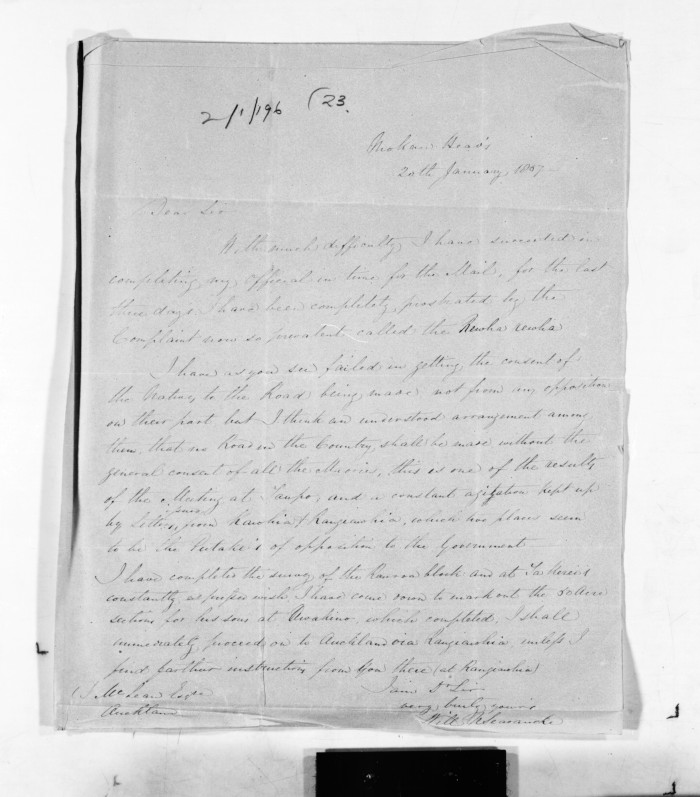 2/1/196 (23.
Mokau Heads
20th January, 1857
Dear Sir
With much difficulty, I have succeeded in
completing my Official in time for the Mail, for the last
three days I have been completely prostrated by the
Complaint now so prevalent called the Rewha rewha
I have as you see failed in getting the consent of
the Natives to the Road being made, not from any opposition
on their part but I think an understood arrangement among
them, that no Road in the Country, shall be made without the
general consent of all the Maories, this is one of the results
of the Meeting at Taupo, and a constant agitation kept up
by Letters from Kawhia & Rangiawhia, which two places seem
to be the of opposition to the Government
I have completed the survey of the block and at
constantly expressed wish, I have come down to mark out the
sections for his sons at Awakino, which completed, I shall
immediately proceed on to Auckland via Rangiawhia, unless I
find farther instructions from you there (at Rangiawhia)
D. McLean Esqre
Auckland
I am Dr Sir
very truly yours